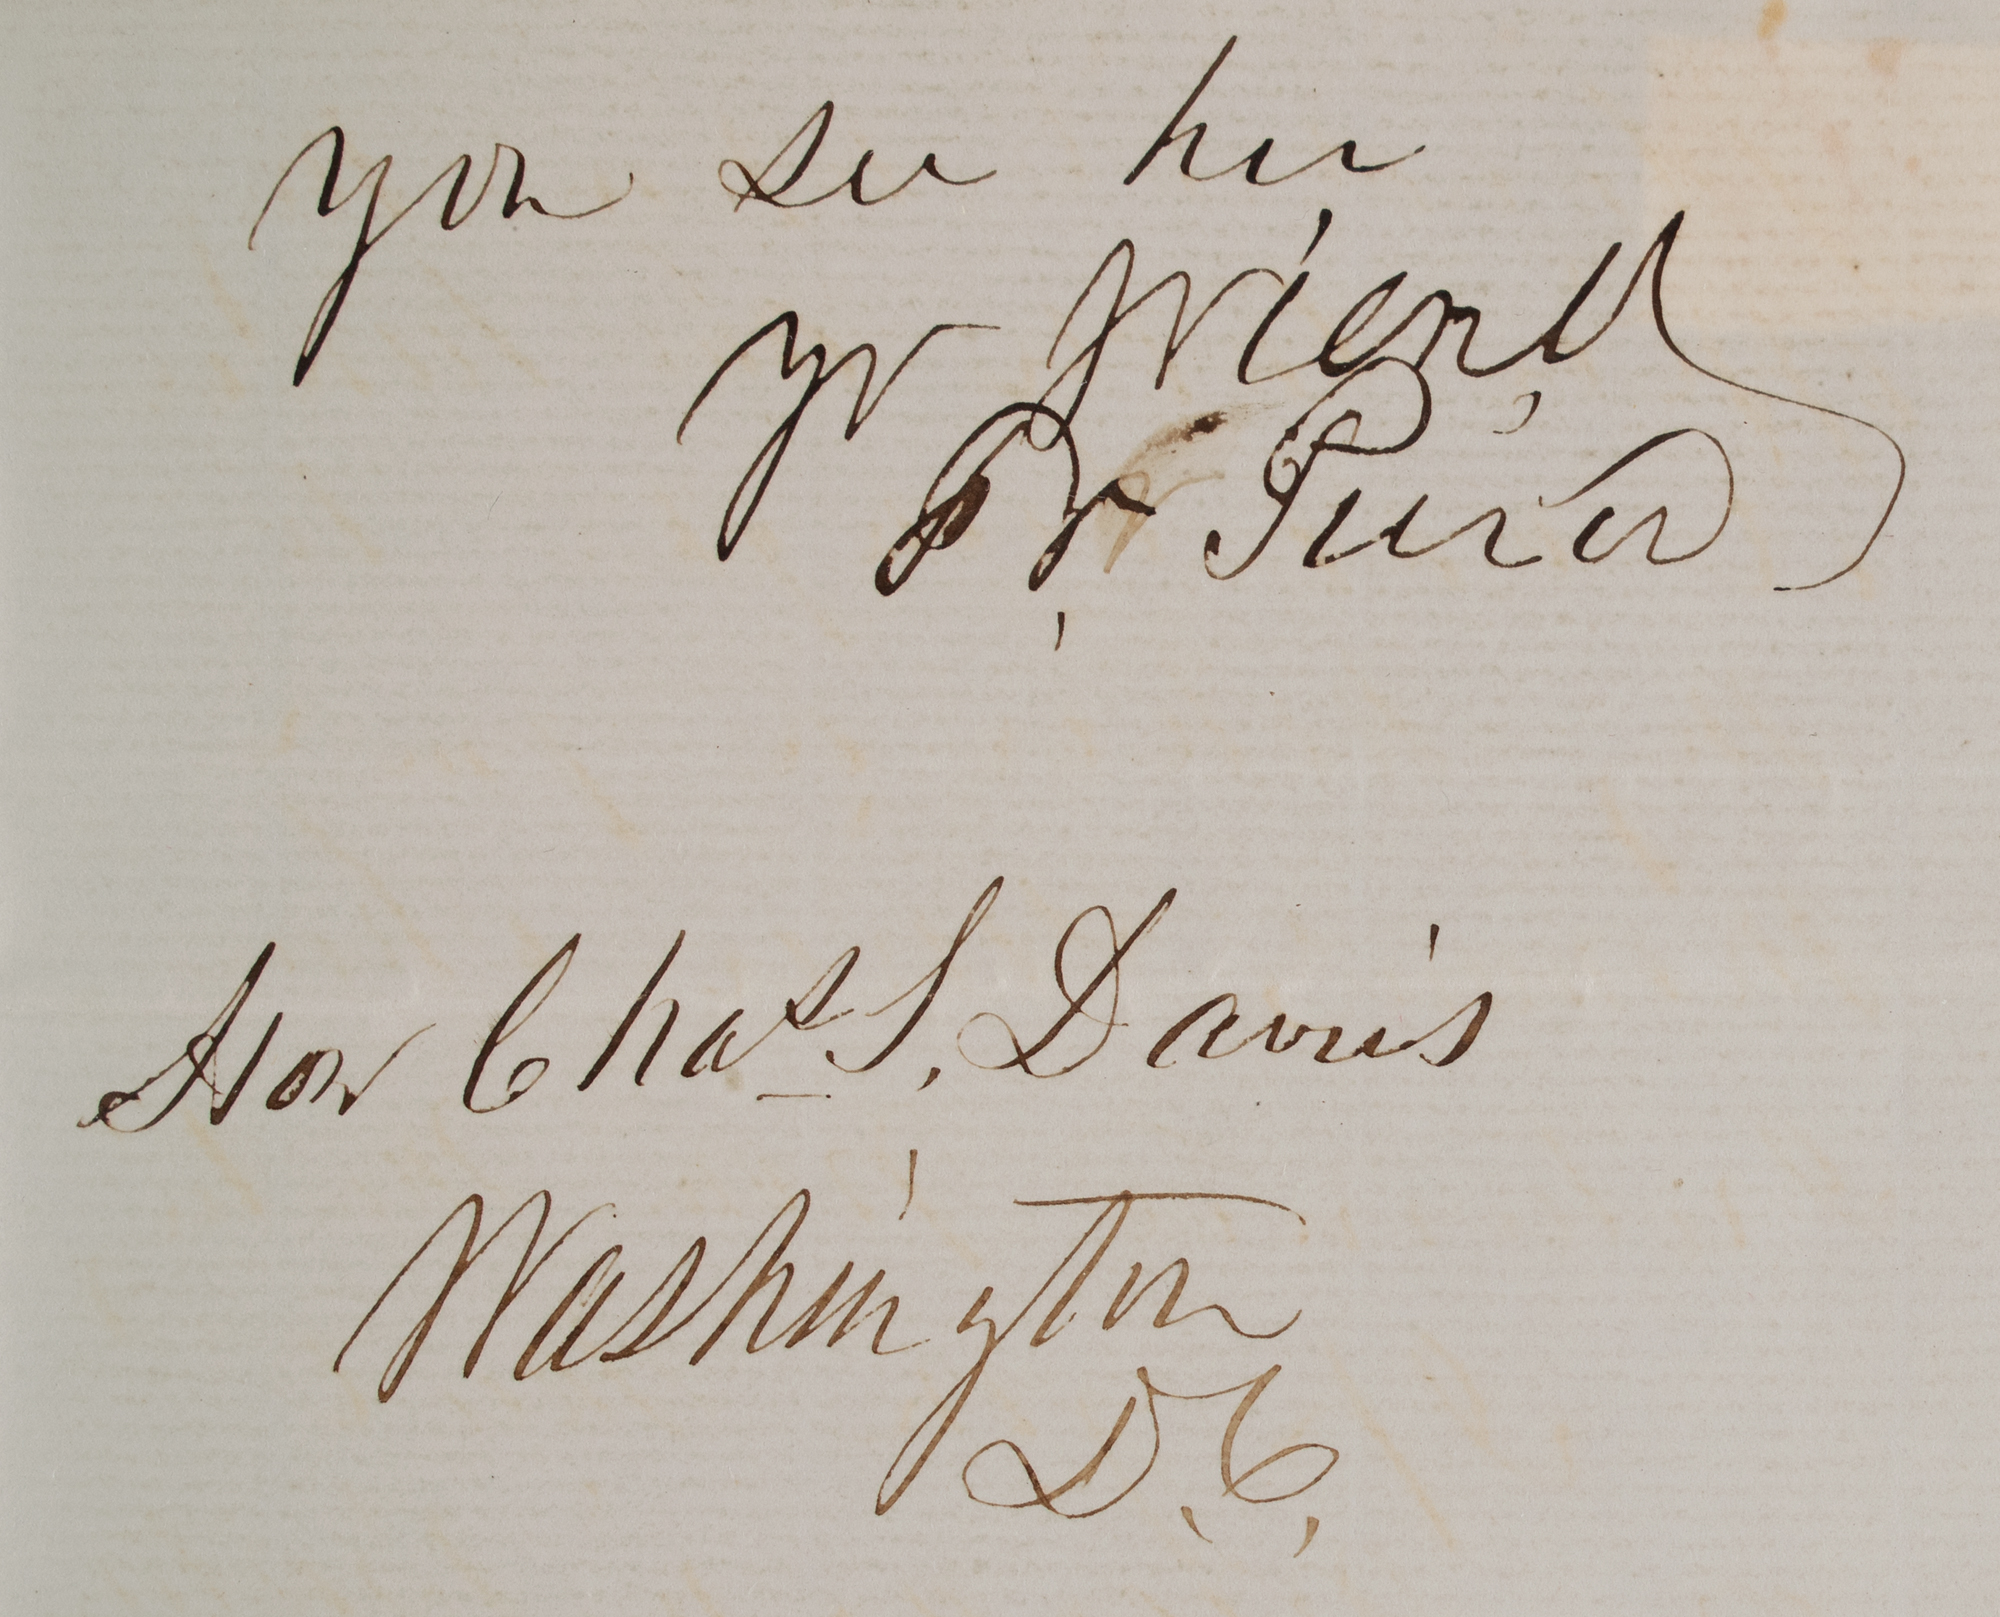 you see her
yr friend
Fr Pierce
Hon Chas S. Davis
Washington
D.C.